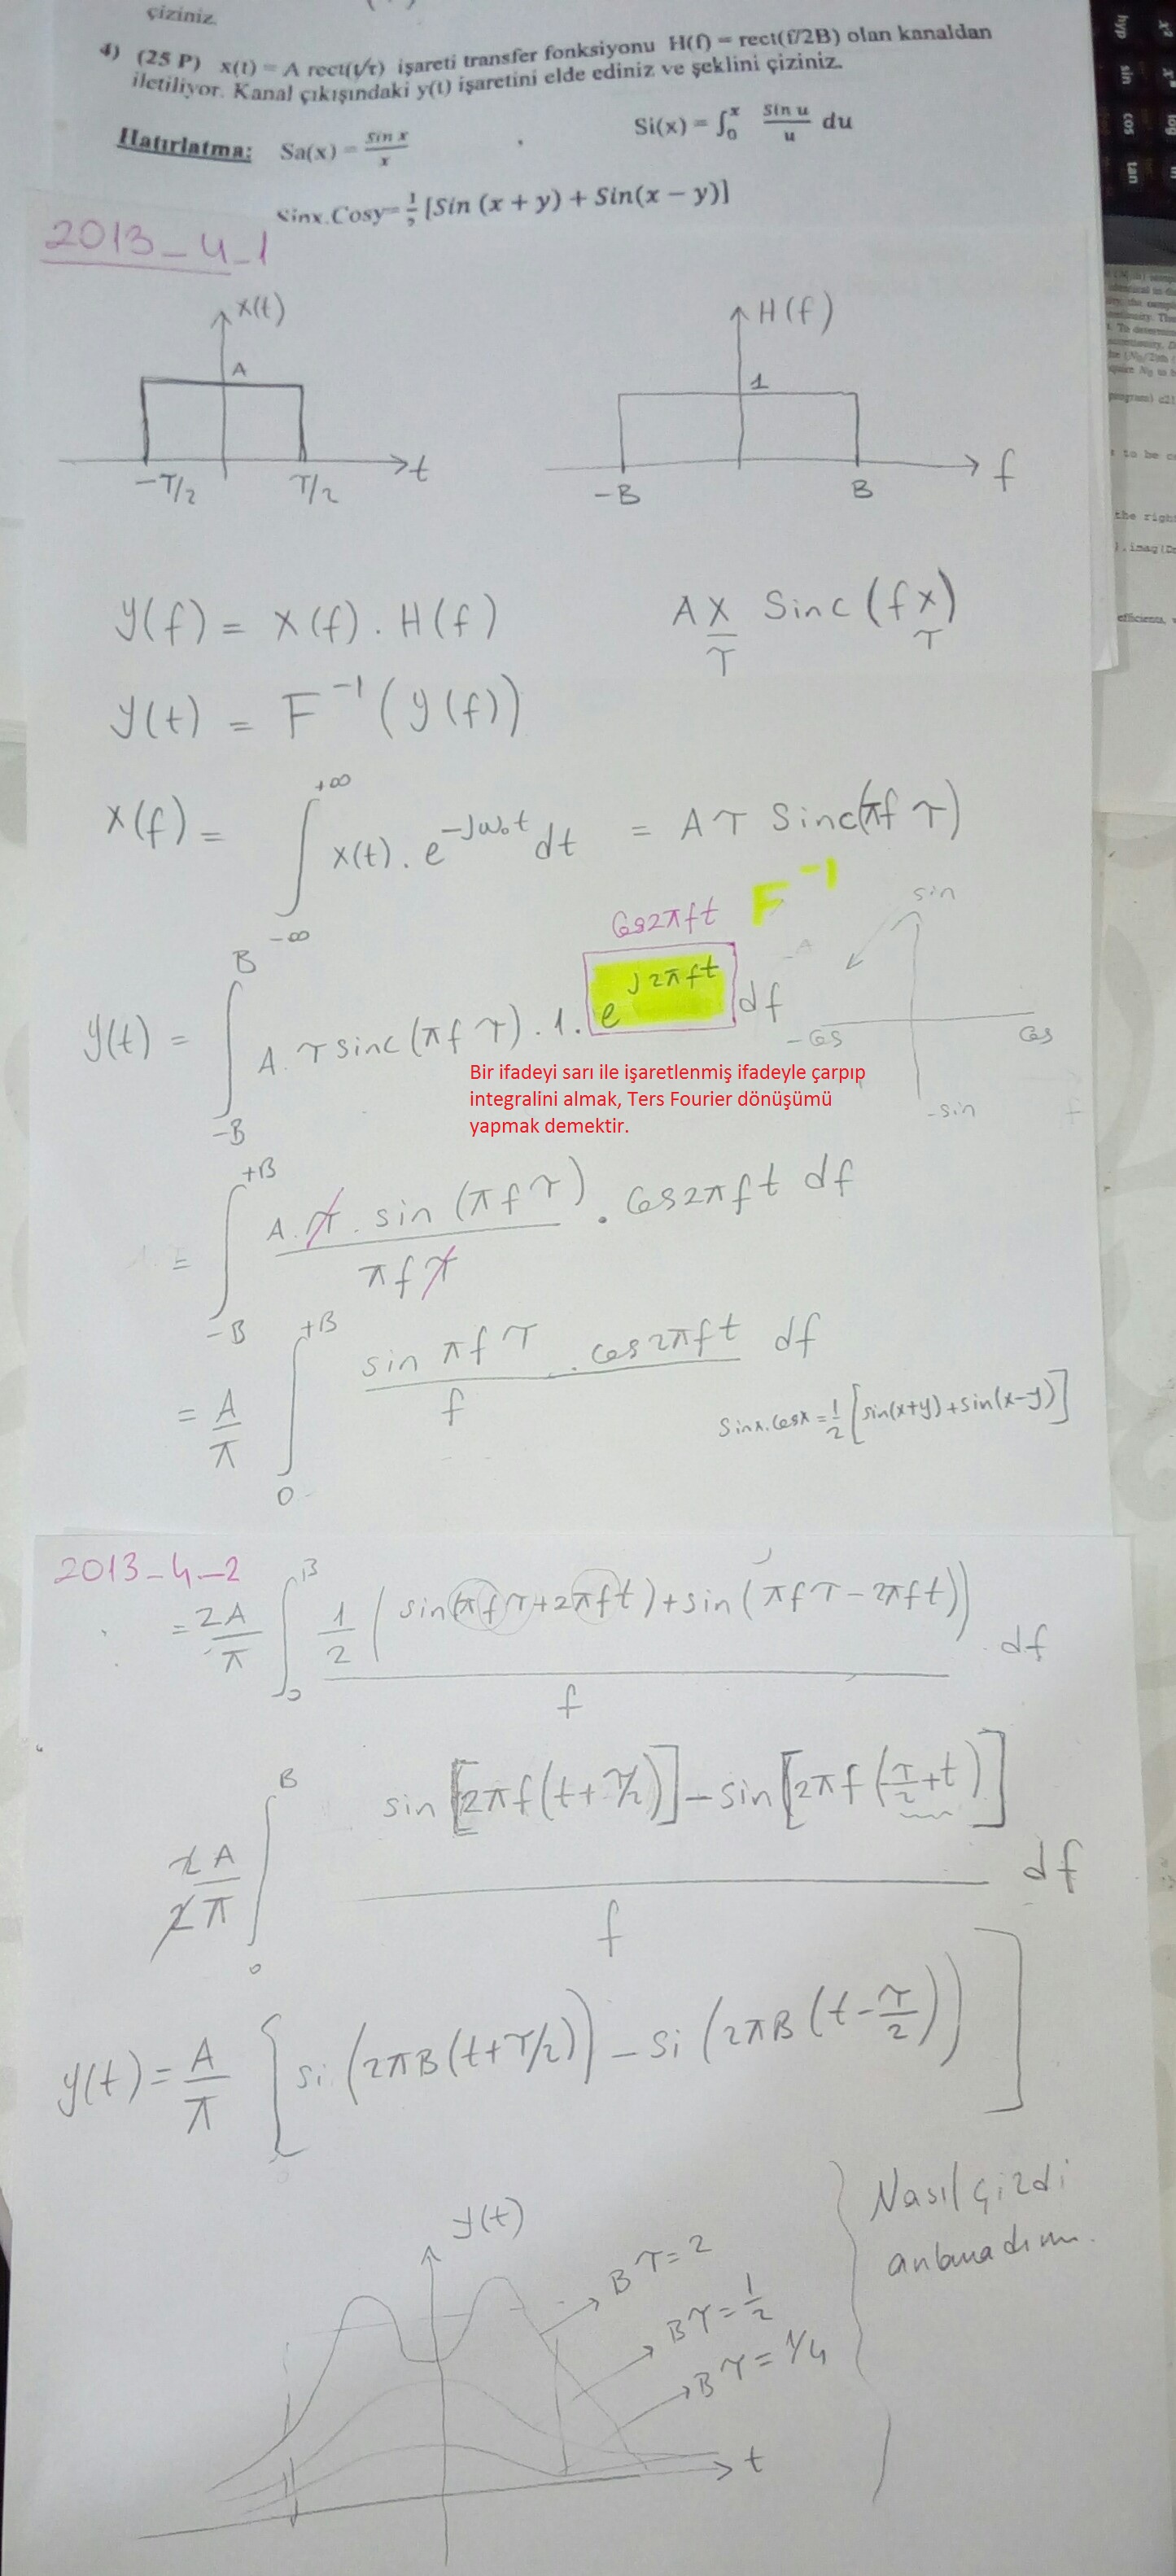 çiziniz.
4) (25 P) x(t) = A rect(t/τ) işareti transfer fonksiyonu H(f) = rect(f/2B) olan kanaldan
iletiliyor. Kanal çıkışındaki y(t) işaretini elde ediniz ve şeklini çiziniz.
Hatırlatma: Sa(x) = sin x / x , Si(x) = ∫₀ˣ Sin u / u du
Sinx.Cosy= ½ [Sin (x + y) + Sin(x − y)]
2013_4_1
x(t)
H(f)
A
1
-τ/2 τ/2 t
-B B f
y(f) = x(f) . H(f)
Aχ Sinc (fχ)
τ τ
y(t) = F⁻¹(y(f))
x(f) = ∫_{-∞}^{+∞} x(t) . e^{-Jω₀t} dt = Aτ Sinc(πf τ)
Cos2πft F⁻¹
sin
-Cos Cos
-sin
y(t) = ∫_{-B}^{B} A.τ sinc(πf τ) . 1 . e^{J2πft} df
Bir ifadeyi sarı ile işaretlenmiş ifadeyle çarpıp
integralini almak, Ters Fourier dönüşümü
yapmak demektir.
= ∫_{-B}^{+B} A.τ. sin (πfτ) / πfτ . Cos2πft df
= A/π ∫_{0}^{+B} sin πfτ . cos2πft / f df
Sinx.Cosx = 1/2 [sin(x+y)+sin(x-y)]
2013_4_2
= 2A/π ∫_{0}^{B} 1/2 (sin(πfτ+2πft)+sin(πfτ-2πft)) / f df
2A/2π ∫_{0}^{B} sin[2πf(t+τ/2)] - sin[2πf(τ/2+t)] / f df
y(t) = A/π [si(2πB(t+τ/2)) - si(2πB(t-τ/2))]
y(t)
Bτ=2
Bτ=1/2
Bτ=1/4
t
Nasıl çizdi
anlamadım.
hyp sin cos tan
log
to be
the right
efficients,